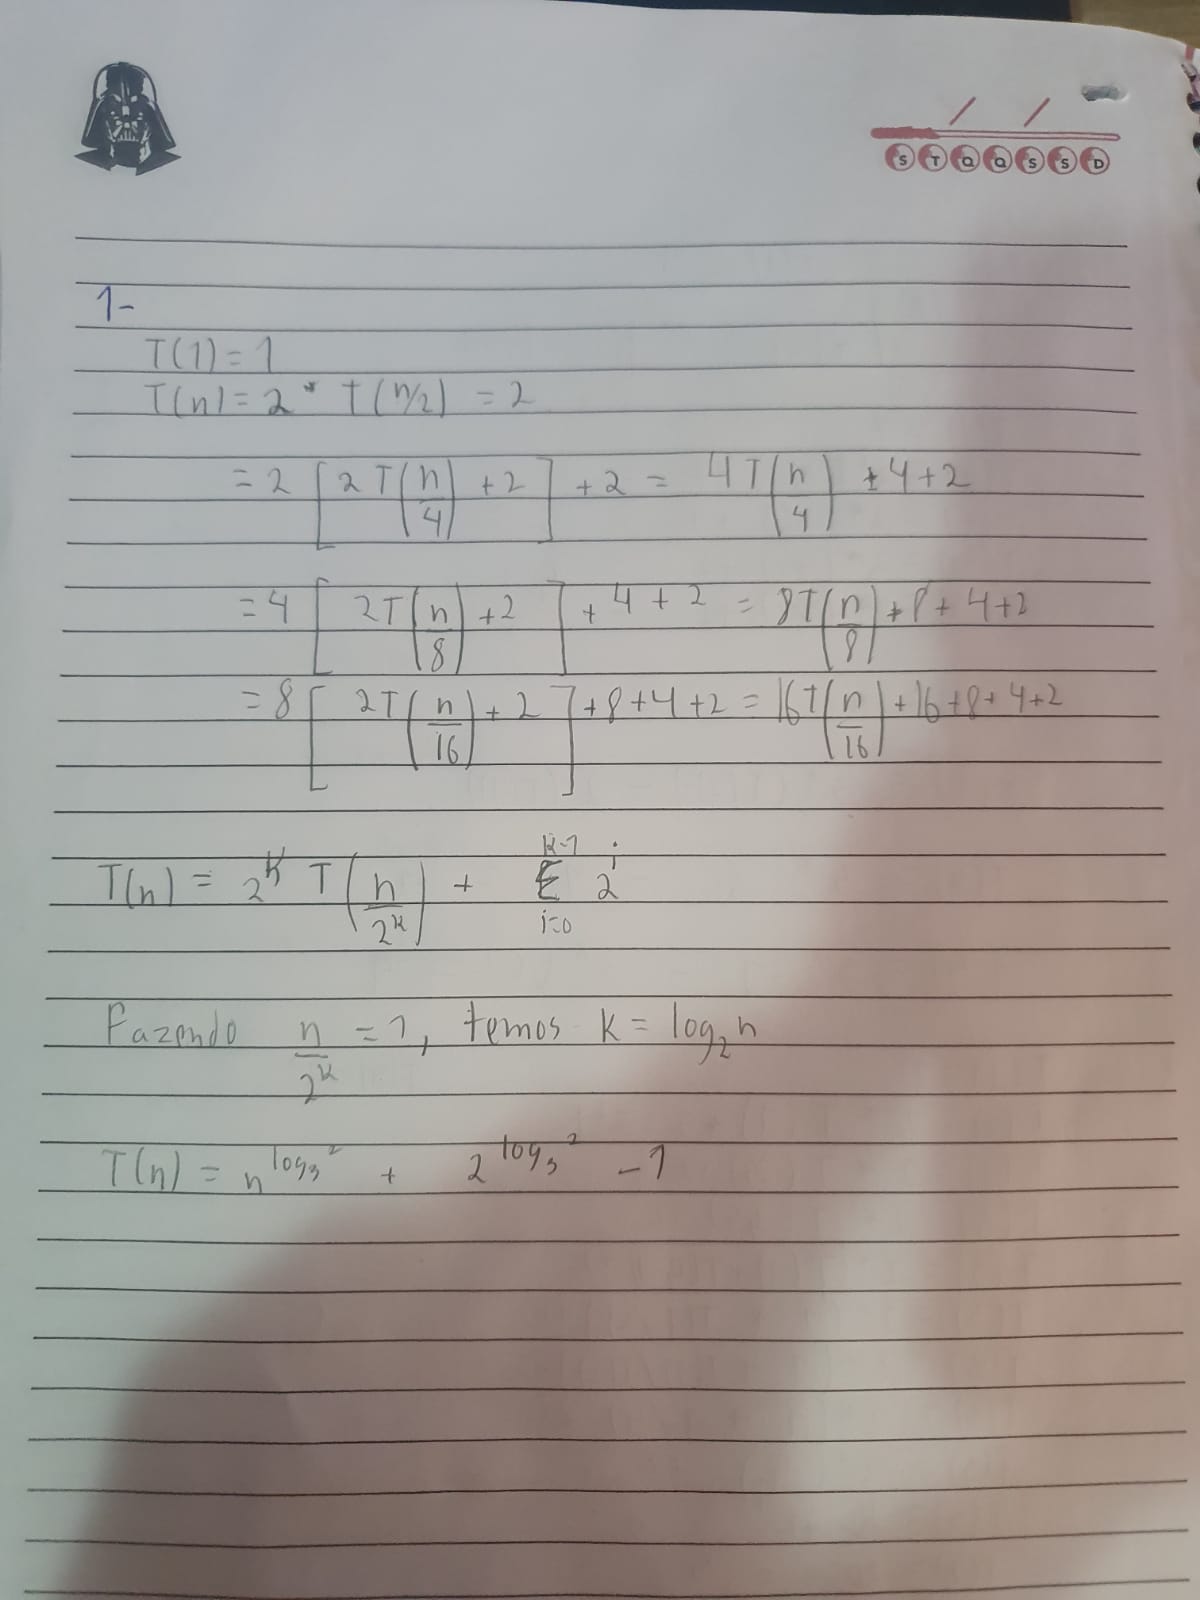 S T Q Q S S D
1-
T(1) = 1
T(n) = 2 * T(n/2) = 2
= 2 [ 2T(n/4) + 2 ] + 2 = 4T(n/4) + 4 + 2
= 4 [ 2T(n/8) + 2 ] + 4 + 2 = 8T(n/8) + 8 + 4 + 2
= 8 [ 2T(n/16) + 2 ] + 8 + 4 + 2 = 16T(n/16) + 16 + 8 + 4 + 2
T(n) = 2^k T(n/2^k) + Σ_{i=0}^{k-1} 2^i
Fazendo n/2^k = 1, temos k = log₂ n
T(n) = n^{log₃ 2} + 2^{log₃ 2} - 1